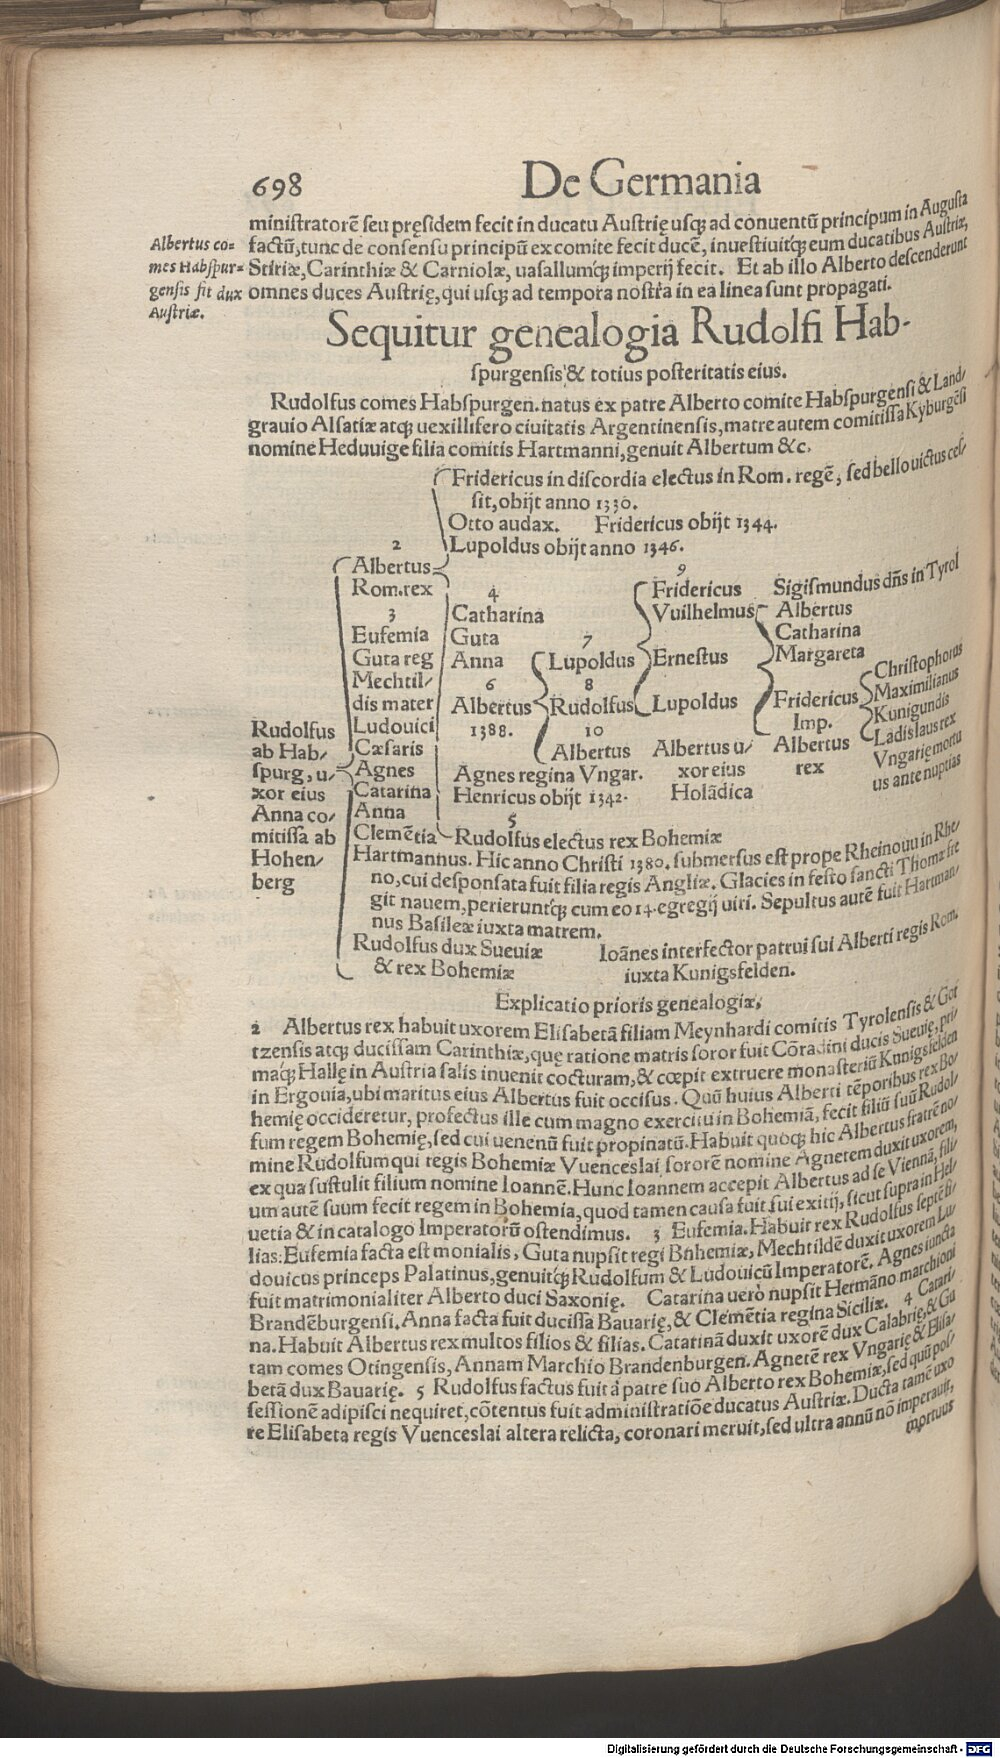 698
De Germania
miniſtratorẽ ſeu pręſidem fecit in ducatu Auſtrię uſq; ad conuentũ principum in Auguſta
factũ, tunc de conſenſu principũ ex comite fecit ducẽ, inueſtiuitq́; eum ducatibus Auſtriæ,
Stiriæ, Carinthiæ & Carniolæ, uaſallumq́; imperij fecit. Et ab illo Alberto deſcenderunt
omnes duces Auſtrię, qui uſq; ad tempora noſtra in ea linea ſunt propagati.
Albertus co=
mes Habſpur=
genſis fit dux
Auſtriæ.
Sequitur genealogia Rudolfi Hab-
ſpurgenſis & totius poſteritatis eius.
Rudolfus comes Habſpurgen. natus ex patre Alberto comite Habſpurgenſi & Land/
grauio Alſatiæ atq; uexillifero ciuitatis Argentinenſis, matre autem comitiſſa Kyburgẽſi
nomine Heduuige filia comitis Hartmanni, genuit Albertum &c.
Fridericus in diſcordia electus in Rom. regẽ, ſed bello uictus ceſ/
ſit, obijt anno 1330.
Otto audax. Fridericus obijt 1344.
Lupoldus obijt anno 1346.
2
Albertus
Rom. rex
3
Eufemia
Guta reg
Mechtil/
dis mater
Ludouici
Cæſaris
Agnes
Catarina
Anna
Clemẽtia
Rudolfus
ab Hab/
ſpurg, u/
xor eius
Anna co/
mitiſſa ab
Hohen/
berg
4
Catharina
Guta
Anna
6
Albertus
1388.
7
Lupoldus
8
Rudolfus
10
Albertus
9
Fridericus
Vuilhelmus
Erneſtus
Lupoldus
Albertus u/
xor eius
Holãdica
Sigiſmundus dñs in Tyrol
Albertus
Catharina
Margareta
Fridericus
Imp.
Albertus
rex
Chriſtophorus
Maximilianus
Kunigundis
Ladislaus rex
Vngarię mortu
us ante nuptias
Agnes regina Vngar.
Henricus obijt 1342.
5
Rudolfus electus rex Bohemiæ
Hartmannus. Hic anno Chriſti 1380. ſubmerſus eſt prope Rheinouu in Rhe/
no, cui deſponſata fuit filia regis Angliæ. Glacies in feſto ſancti Thomæ fre
git nauem, perieruntq́; cum eo 14. egregij uiri. Sepultus autẽ fuit Hartman/
nus Baſileæ iuxta matrem.
Rudolfus dux Sueuiæ
& rex Bohemiæ
Ioãnes interfector patrui ſui Alberti regis Rom.
iuxta Kunigsfelden.
Explicatio prioris genealogiæ.
2 Albertus rex habuit uxorem Eliſabetã filiam Meynhardi comitis Tyrolenſis & Got
tzenſis atq; duciſſam Carinthiæ, quę ratione matris ſoror fuit Cõradini ducis Sueuię, pri/
maq́; Hallę in Auſtria ſalis inuenit cocturam, & cœpit extruere monaſteriũ Kunigsfelden
in Ergouia, ubi maritus eius Albertus fuit occiſus. Quũ huius Alberti tẽporibus rex Bo/
hemię occideretur, profectus ille cum magno exercitu in Bohemiã, fecit filiũ ſuũ Rudol/
fum regem Bohemię, ſed cui uenenũ fuit propinatũ. Habuit quoq; hic Albertus fratrẽ no/
mine Rudolfum qui regis Bohemiæ Vuenceslai ſororẽ nomine Agnetem duxit uxorem,
ex qua ſuſtulit filium nomine Ioannẽ. Hunc Ioannem accepit Albertus ad ſe Viennã, fili/
um autẽ ſuum fecit regem in Bohemia, quod tamen cauſa fuit ſui exitij, ſicut ſupra in Hel/
uetia & in catalogo Imperatorũ oſtendimus. 3 Eufemia. Habuit rex Rudolfus ſeptẽ fi/
lias: Eufemia facta eſt monialis, Guta nupſit regi Bohemiæ, Mechtildẽ duxit uxorem Lu/
douicus princeps Palatinus, genuitq́; Rudolfum & Ludouicũ Imperatorẽ. Agnes iuncta
fuit matrimonialiter Alberto duci Saxonię. Catarina uerò nupſit Hermãno marchioni
Brandẽburgenſi. Anna facta fuit duciſſa Bauarię, & Clemẽtia regina Siciliæ. 4 Catari/
na. Habuit Albertus rex multos filios & filias. Catarinã duxit uxorẽ dux Calabrię, & Gu
tam comes Otingenſis, Annam Marchio Brandenburgen. Agnetẽ rex Vngarię & Eliſa/
betã dux Bauarię. 5 Rudolfus factus fuit à patre ſuo Alberto rex Bohemiæ, ſed quũ poſ/
ſeſſionẽ adipiſci nequiret, cõtentus fuit adminiſtratiõe ducatus Auſtriæ. Ducta tamẽ uxo
re Eliſabeta regis Vuenceslai altera relicta, coronari meruit, ſed ultra annũ nõ imperauit,
mortuus
Digitalisierung gefördert durch die Deutsche Forschungsgemeinschaft - DFG